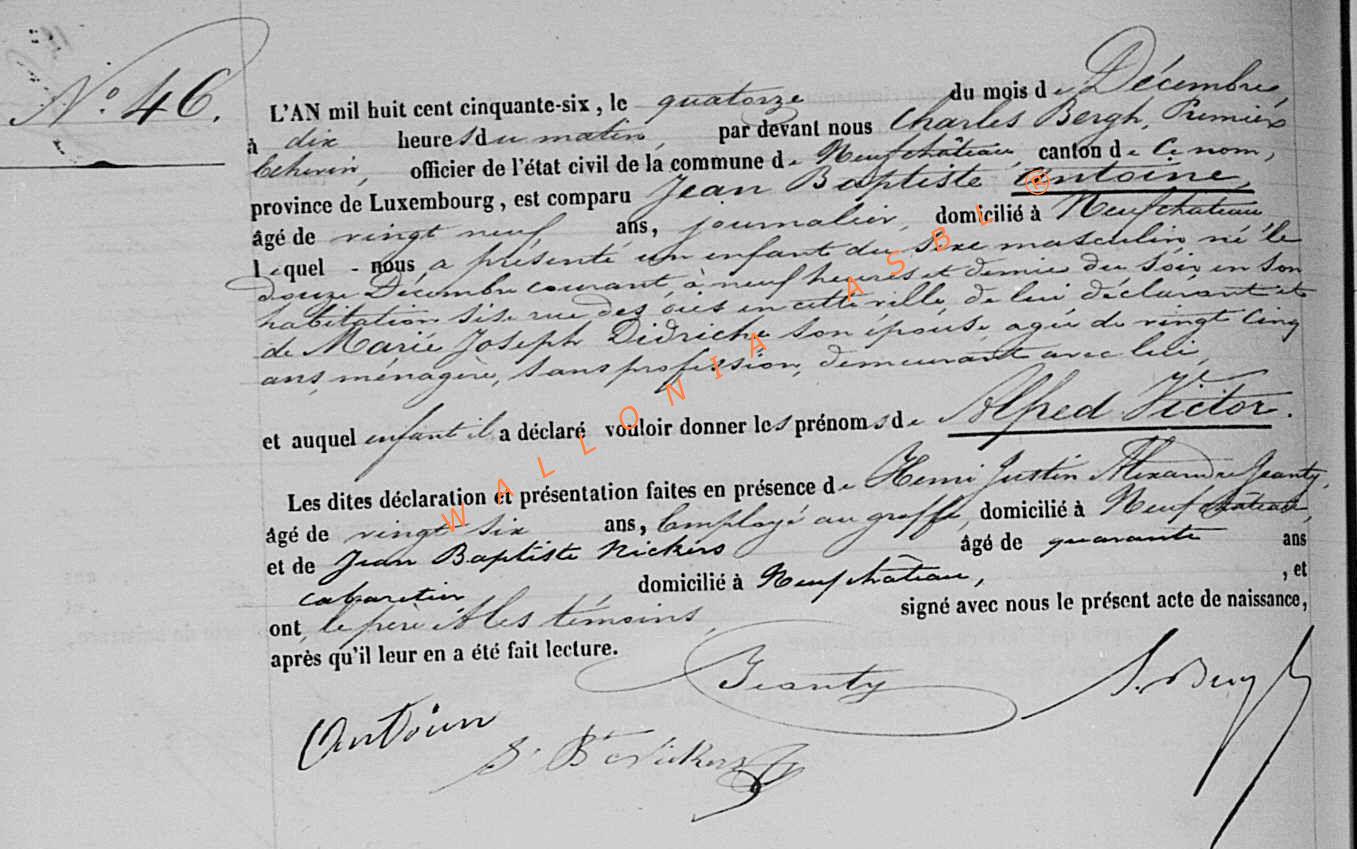 N.º 46.
L'AN mil huit cent cinquante-six, le quatorze du mois de Décembre,
à dix heures du matin, par devant nous Charles Bergh, Premier
Echevin, officier de l'état civil de la commune de Neufchâteau, canton de ce nom,
province de Luxembourg, est comparu Jean Baptiste Antoine,
âgé de vingt neuf ans, journalier, domicilié à Neufchateau,
lequel - nous a présenté un enfant du sexe masculin, né le
douze Décembre courant, à neuf heures et demie du soir, en son
habitation sise rue des oies en cette ville, de lui déclarant et
de Marie Joseph Didriche son épouse, agée de vingt cinq
ans, ménagère, sans profession, demeurant avec lui,
et auquel enfant il a déclaré vouloir donner les prénoms de Alfred Victor.
Les dites déclaration et présentation faites en présence de Henri Justin Alexandre Jeanty,
âgé de vingt six ans, Employé au greffe, domicilié à Neufchâteau,
et de Jean Baptiste Nickers âgé de quarante ans
cabaretier domicilié à Neufchâteau, , et
ont, le père et les témoins, signé avec nous le présent acte de naissance,
après qu'il leur en a été fait lecture.
Jeanty
Antoine
WALLONIA ASBL ®